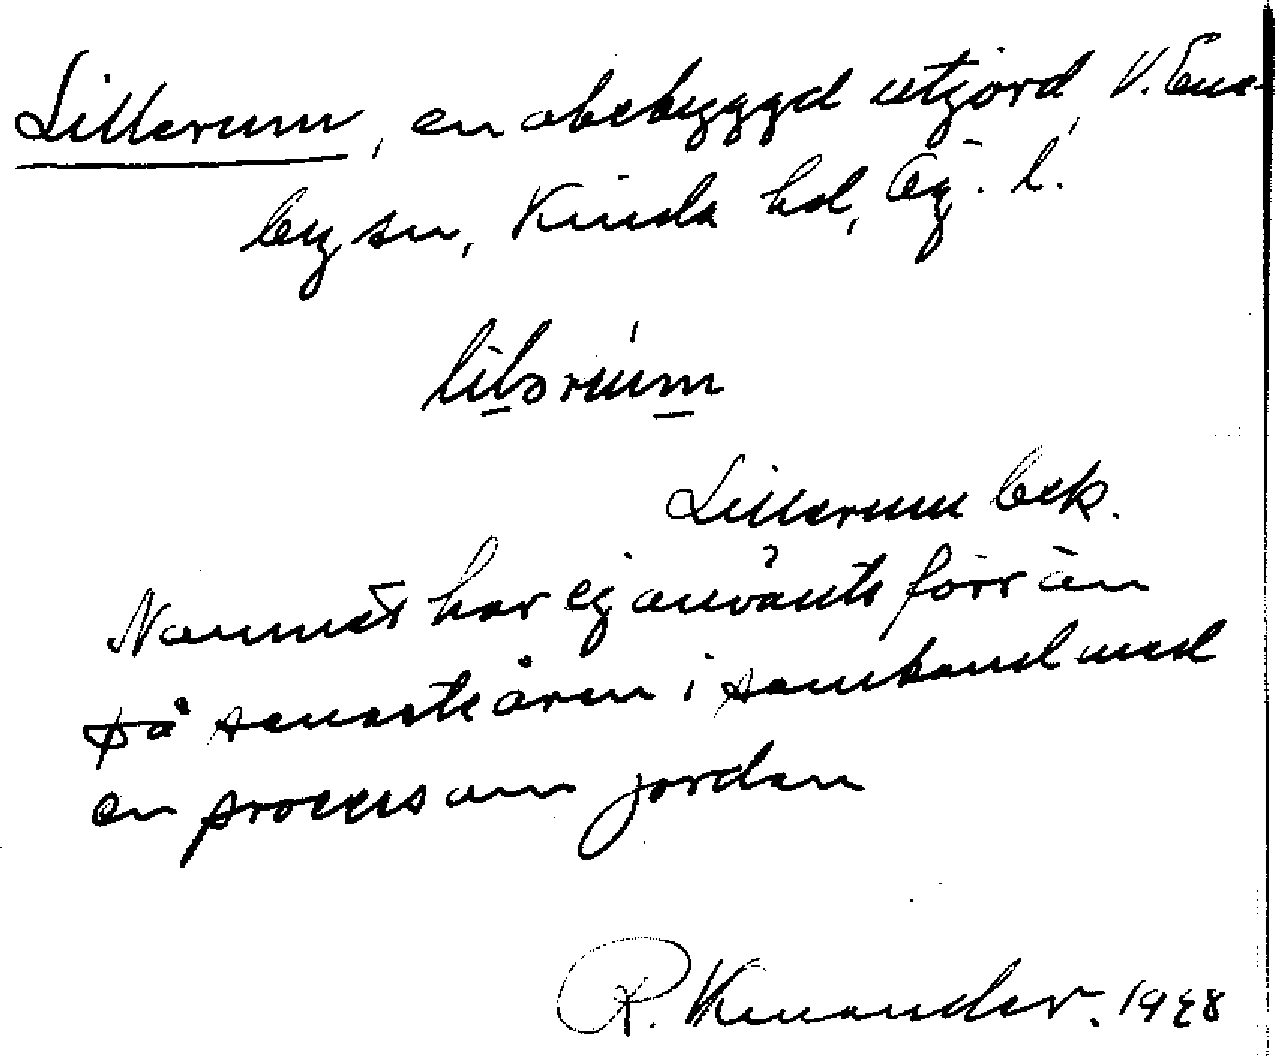 Lillerum, en obebyggd utjord, V. Ene-
by sn, Kinda hd, Ög. l.
lilərùm
Lillerum bek.
Namnet har ej använts förr än
på senaste åren i samband med
en process om jorden
R. Kenander. 1948